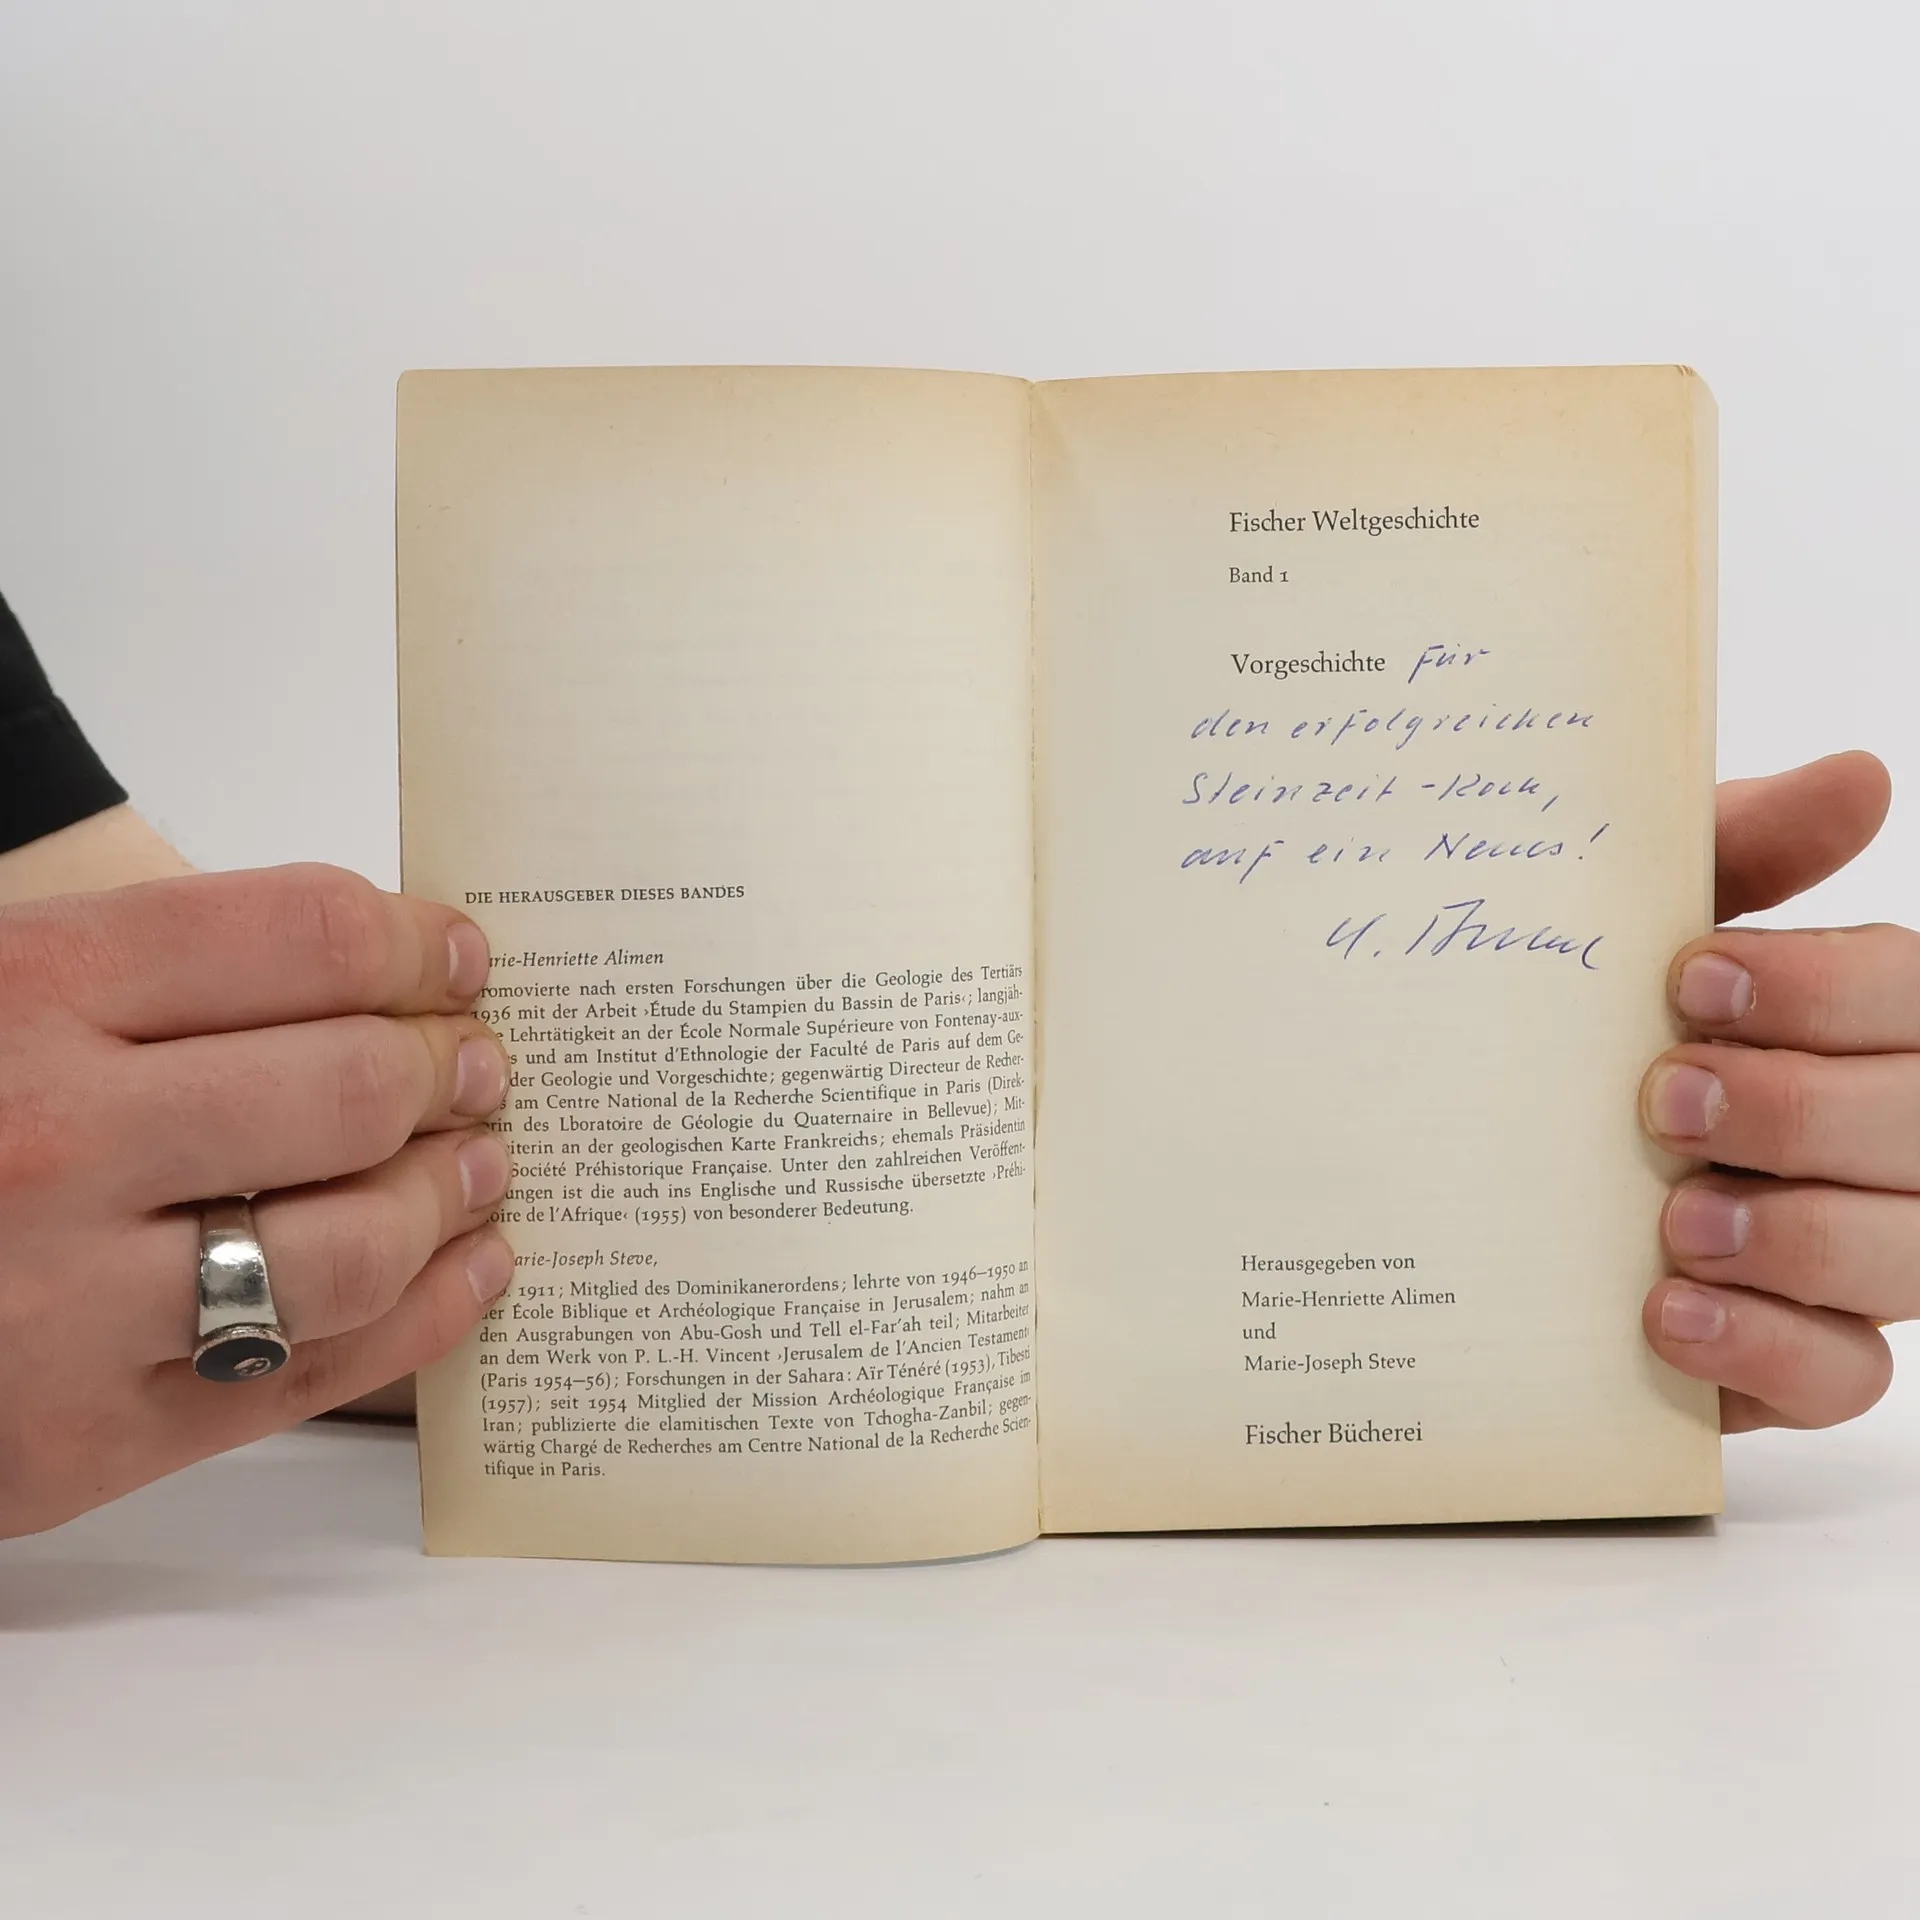 DIE HERAUSGEBER DIESES BANDES
rie-Henriette Alimen
romovierte nach ersten Forschungen über die Geologie des Tertiärs
1936 mit der Arbeit ›Étude du Stampien du Bassin de Paris‹; langjäh-
e Lehrtätigkeit an der École Normale Supérieure von Fontenay-aux-
s und am Institut d'Ethnologie der Faculté de Paris auf dem Ge-
der Geologie und Vorgeschichte; gegenwärtig Directeur de Recher-
s am Centre National de la Recherche Scientifique in Paris (Direk-
rin des Lboratoire de Géologie du Quaternaire in Bellevue); Mit-
iterin an der geologischen Karte Frankreichs; ehemals Präsidentin
Société Préhistorique Française. Unter den zahlreichen Veröffent-
ungen ist die auch ins Englische und Russische übersetzte ›Préhi-
oire de l'Afrique‹ (1955) von besonderer Bedeutung.
arie-Joseph Steve,
. 1911; Mitglied des Dominikanerordens; lehrte von 1946–1950 an
er École Biblique et Archéologique Française in Jerusalem; nahm an
den Ausgrabungen von Abu-Gosh und Tell el-Far'ah teil; Mitarbeiter
an dem Werk von P. L.-H. Vincent ›Jerusalem de l'Ancien Testament‹
(Paris 1954–56); Forschungen in der Sahara: Aïr Ténéré (1953), Tibesti
(1957); seit 1954 Mitglied der Mission Archéologique Française im
Iran; publizierte die elamitischen Texte von Tchogha-Zanbil; gegen-
wärtig Chargé de Recherches am Centre National de la Recherche Scien-
tifique in Paris.
Fischer Weltgeschichte
Band 1
Vorgeschichte Für
den erfolgreichen
Steinzeit-Koch,
auf ein Neues!
Herausgegeben von
Marie-Henriette Alimen
und
Marie-Joseph Steve
Fischer Bücherei